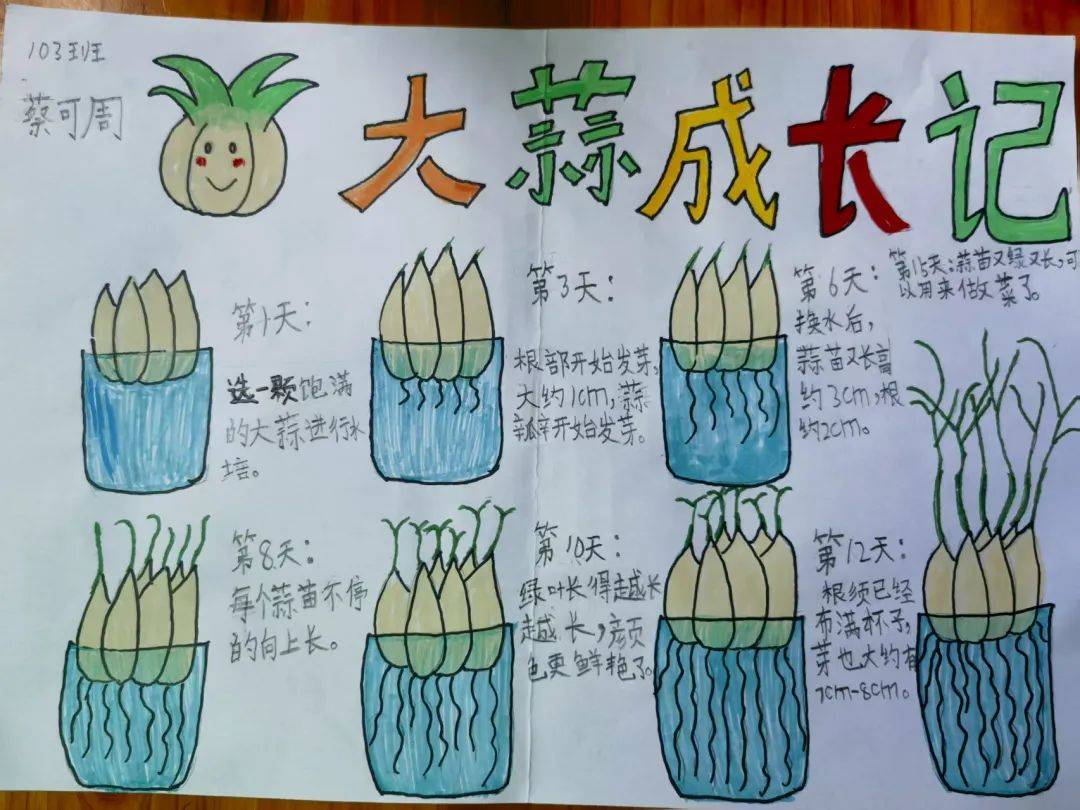 103班
蔡可周
大蒜成长记
第1天：
选一颗饱满
的大蒜进行水
培。
第3天：
根部开始发芽，
大约1cm，蒜
瓣开始发芽。
第6天：
换水后，
蒜苗又长高
约3cm，根
约2cm。
第15天：蒜苗又绿又长，可
以用来做菜了。
第8天：
每个蒜苗不停
的向上长。
第10天：
绿叶长得越长
越长，颜
色更鲜艳了。
第12天：
根须已经
布满杯子，
芽也大约有
7cm-8cm。